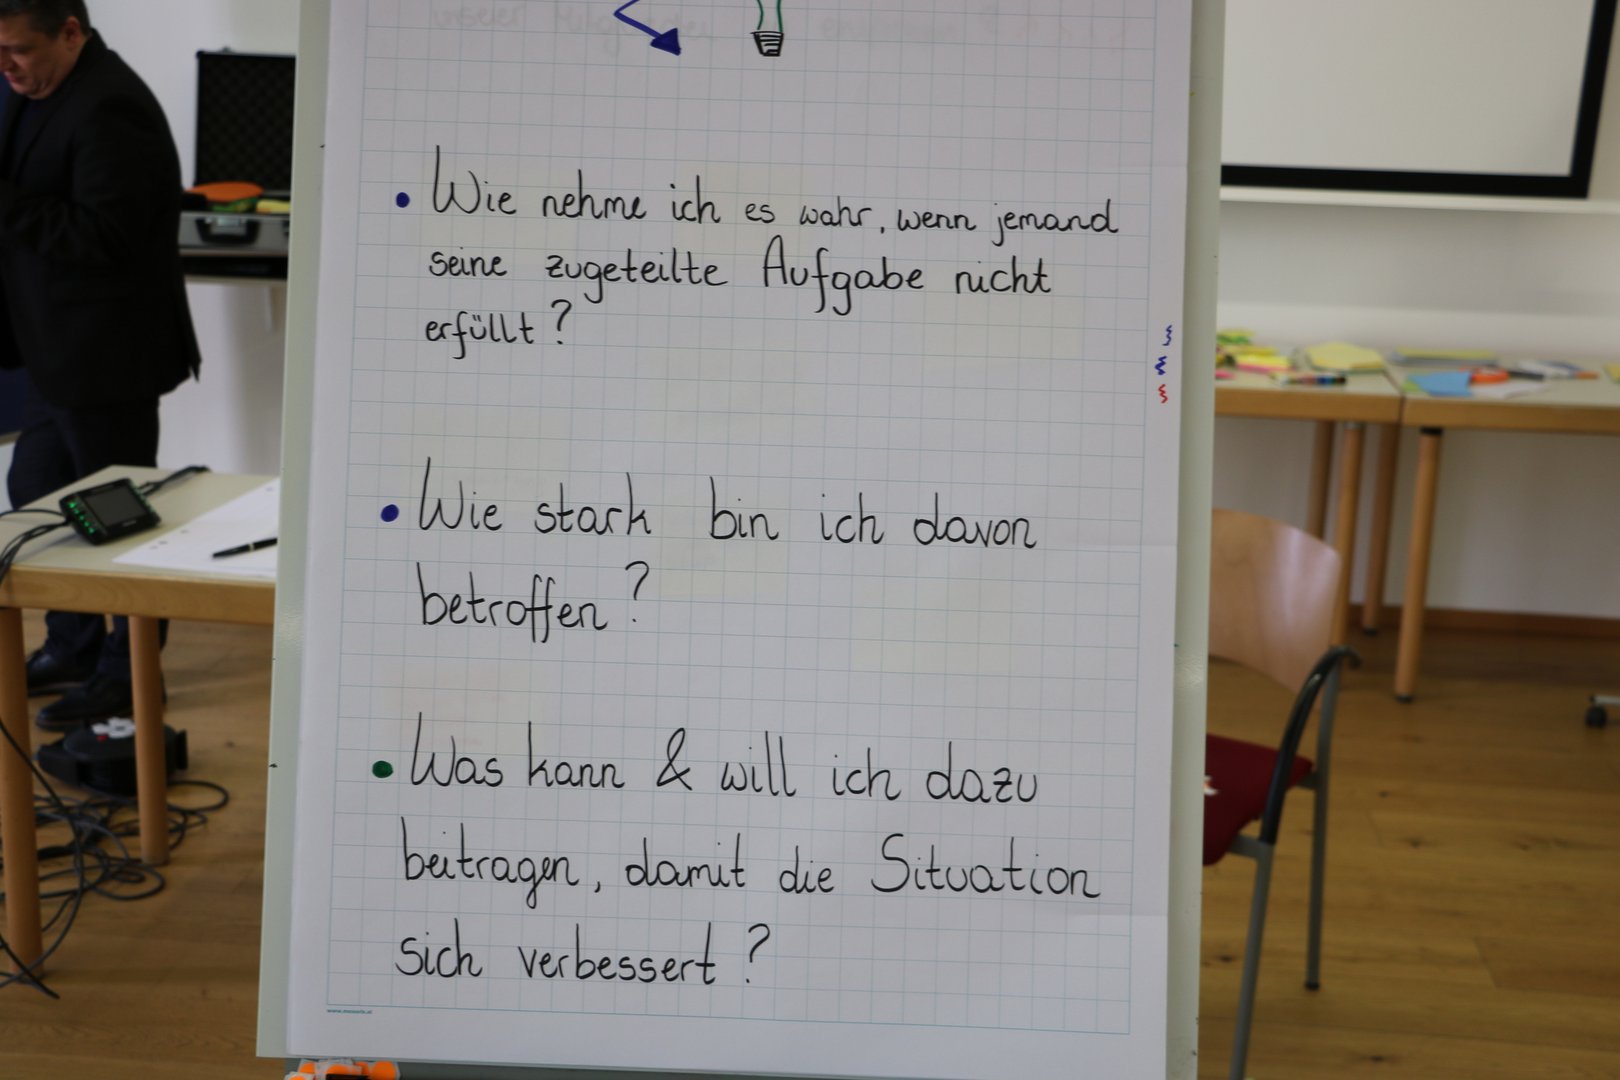 • Wie nehme ich es wahr, wenn jemand
seine zugeteilte Aufgabe nicht
erfüllt?
• Wie stark bin ich davon
betroffen?
• Was kann & will ich dazu
beitragen, damit die Situation
sich verbessert?